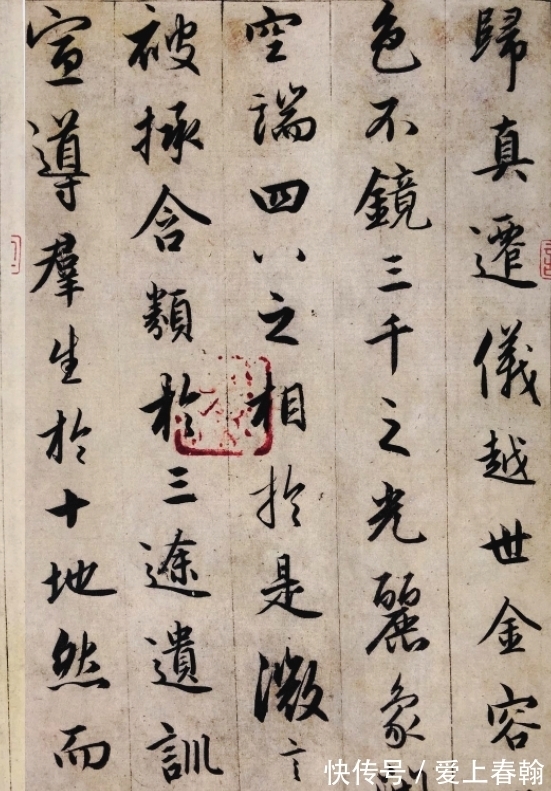 歸真遷儀越世金容
色不鏡三千之光麗象
空端四八之相於是微言
被拯含類於三途遺訓
宣導羣生於十地然而
快传号 / 爱上春翰